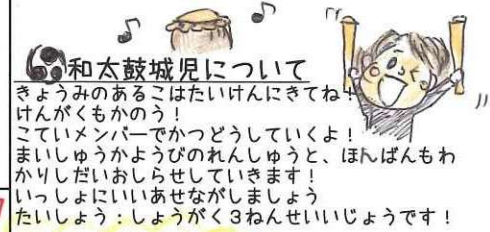 和太鼓城児について
きょうみのあるこはたいけんにきてね!
けんがくもかのう!
こていメンバーでかつどうしていくよ!
まいしゅうかようびのれんしゅうと、ほんばんもわ
かりしだいおしらせしていきます!
いっしょにいいあせながしましょう
たいしょう:しょうがく3ねんせいいじょうです!